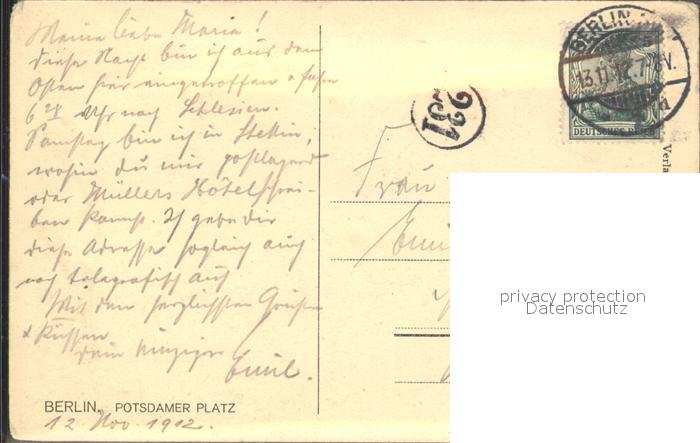 Meine liebe Maria!
Diese Nacht bin ich aus dem
Osten hier eingetroffen u fahre
6 Uhr nach Schlesien.
Samstag bin ich in Stettin,
wohin du mir postlagernd
oder Müllers Hôtel schrei-
ben kannst. Ich gebe dir
diese Adresse sogleich auch
noch telegrafisch auf.
Mit den herzlichsten Grüßen
& Küssen
dein einziger
Emil.
BERLIN, POTSDAMER PLATZ
12 Nov. 1912.
Frau
Emil
BERLIN
13.11.12.7-8V.
DEUTSCHES REICH
Verla
privacy protection
Datenschutz